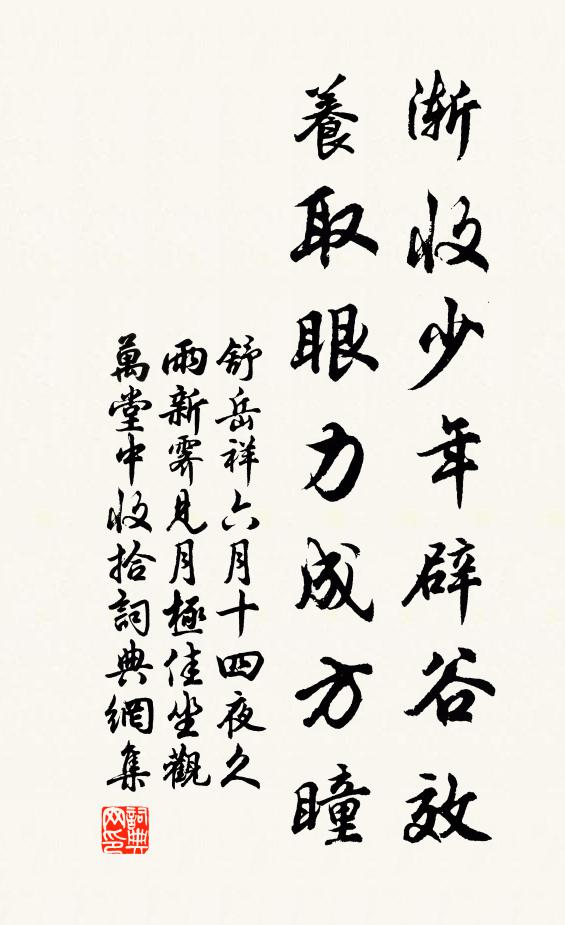 漸收少年辟谷效
養取眼力成方瞳
舒岳祥六月十四夜久
雨新霽見月極佳坐觀
萬堂中收拾詞典網集
詞典网印